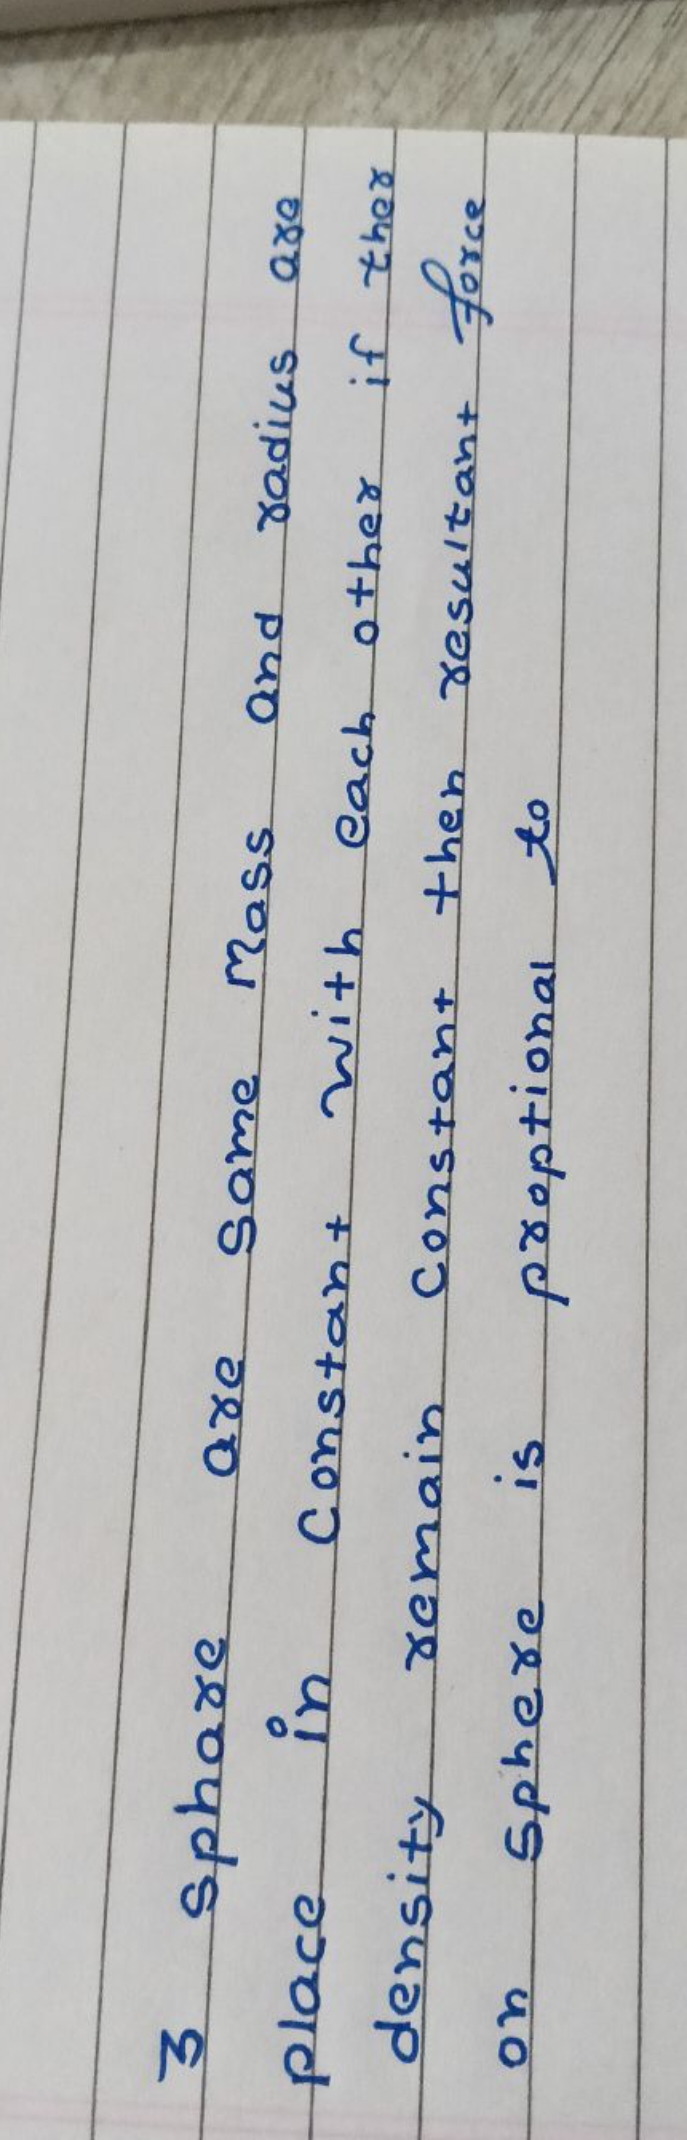 3 sphare are same Mass and radius are
place in constant with each other if ther
density remain constant then resultant force
on sphere is proptional to